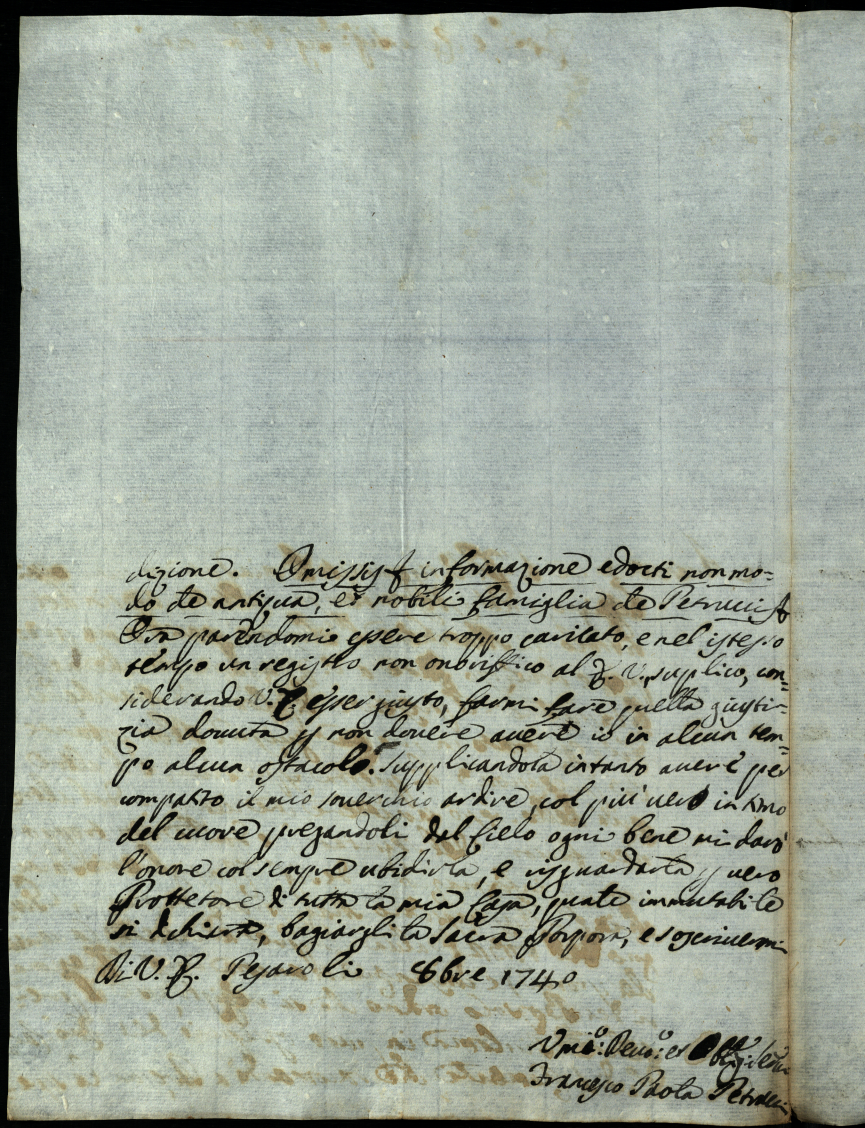 dizione. Omissis informazione edocti non mo=
do de antiqua, et nobili famiglia de Petrucci
Ora parendomi essere troppo caricato, e nel istesso
tempo un registro non onoriffico al V. supplico, con=
siderando V. esser giusto, farmi fare quella giusti=
zia dovuta p non dovere avere io in alcun tem=
po alcun ostacolo. Supplicandola intanto avere per
compatito il mio soverchio ardire, col più vero intimo
del cuore pregandoli dal Cielo ogni bene mi darò
l'onore col sempre ubidirla, e risguardarla p vero
Prottetore di tutta la mia Casa, quale immutabile
si dichiara, bagiargli la Sacra Porpora, e soscrivermi
Di V. Pesaro li 8bre 1740
Vmio: Devo: et Obbg:
Francesco Paola Petrucci